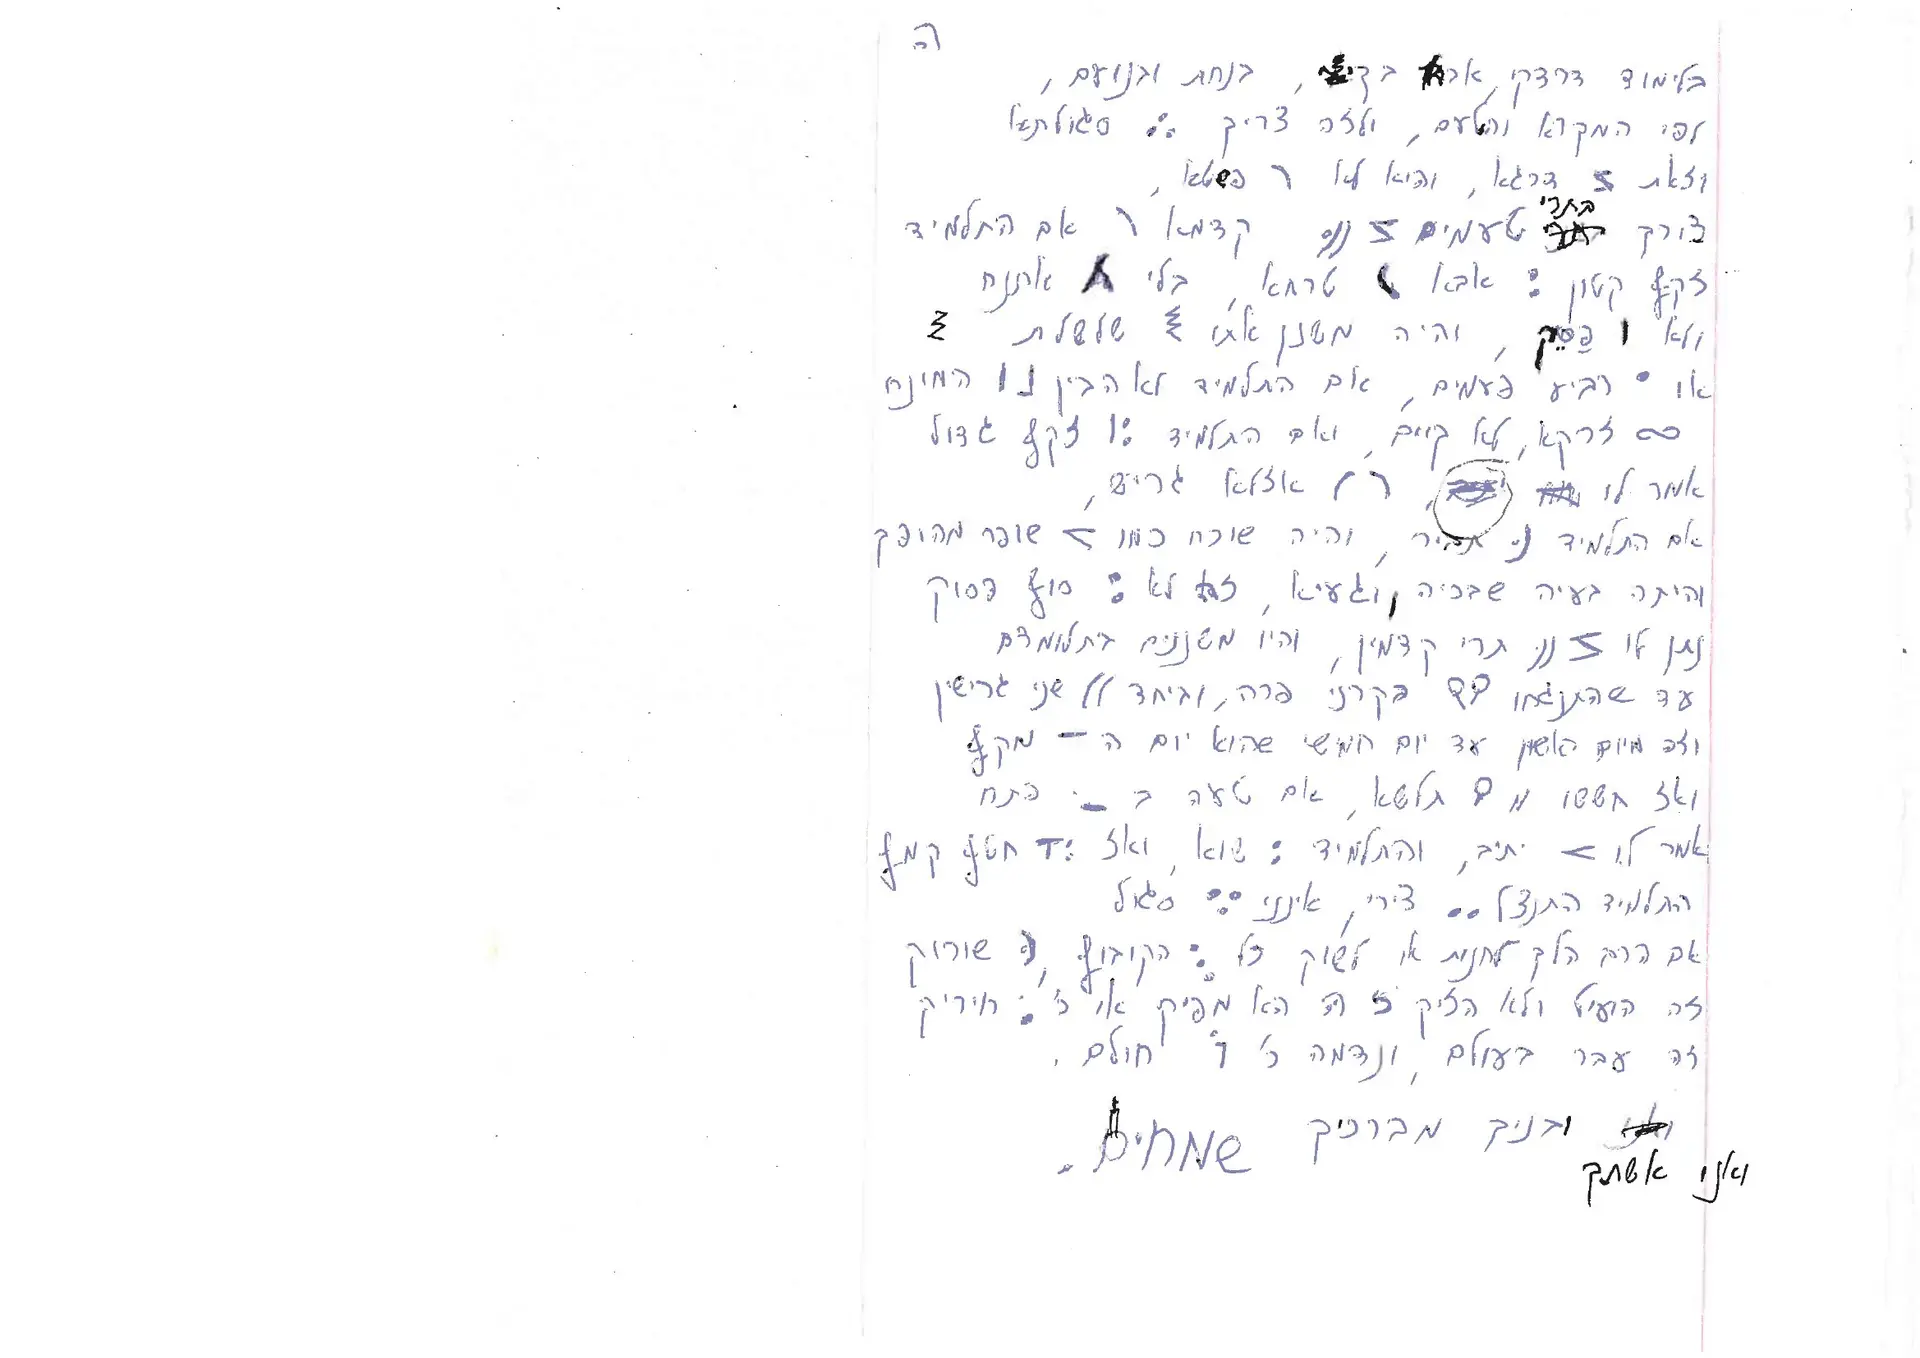 ה
בלימוד דרדקי, בנחת ובנועם,
לפי המקרא והטעם, ולזה צריך ∴ סגולתא
וזאת דרגא, והיא לא פשטא,
צורק בתרי טעמים קדמא אם התלמיד
זקף קטון : אבא טרחא, בלי אתנח
ולא ו פסק, והיה משנן אתו שלשלת
או • רביע פעמים, אם התלמיד לא הבין המונח
∞ זרקא, לא קיים, ואם התלמיד זקף גדול
אמר לו אזלא גריש,
אם התלמיד תביר, והיה שורח כמו < שופר מהופך
והיתה בעיה שבכיה וגעיא, לא : סוף פסוק
נתן לו תרי קדמין, והיו משננים בתלמודם
עד שהתנגחו בקרני פרה, וביחד שני גרישין
וזה מיום ראשון עד יום חמישי שהוא יום ה – מקף
ואז חששו מ תלשא, אם טעה ב – פתח
אמר לו < יתיב, והתלמיד : שוא, ואז חטף קמץ
התלמיד התנצל .. צירי, אינני סגול
אם הרב הלך לחנות או לשוק כל הקובוץ, שורוק
זה הועיל ולא הזיק הא מפיק או כ' חיריק
זה עבר בעולם, ונדמה כ' חולם.
ובניך מברכיך שמחים.
ואנו אשתך